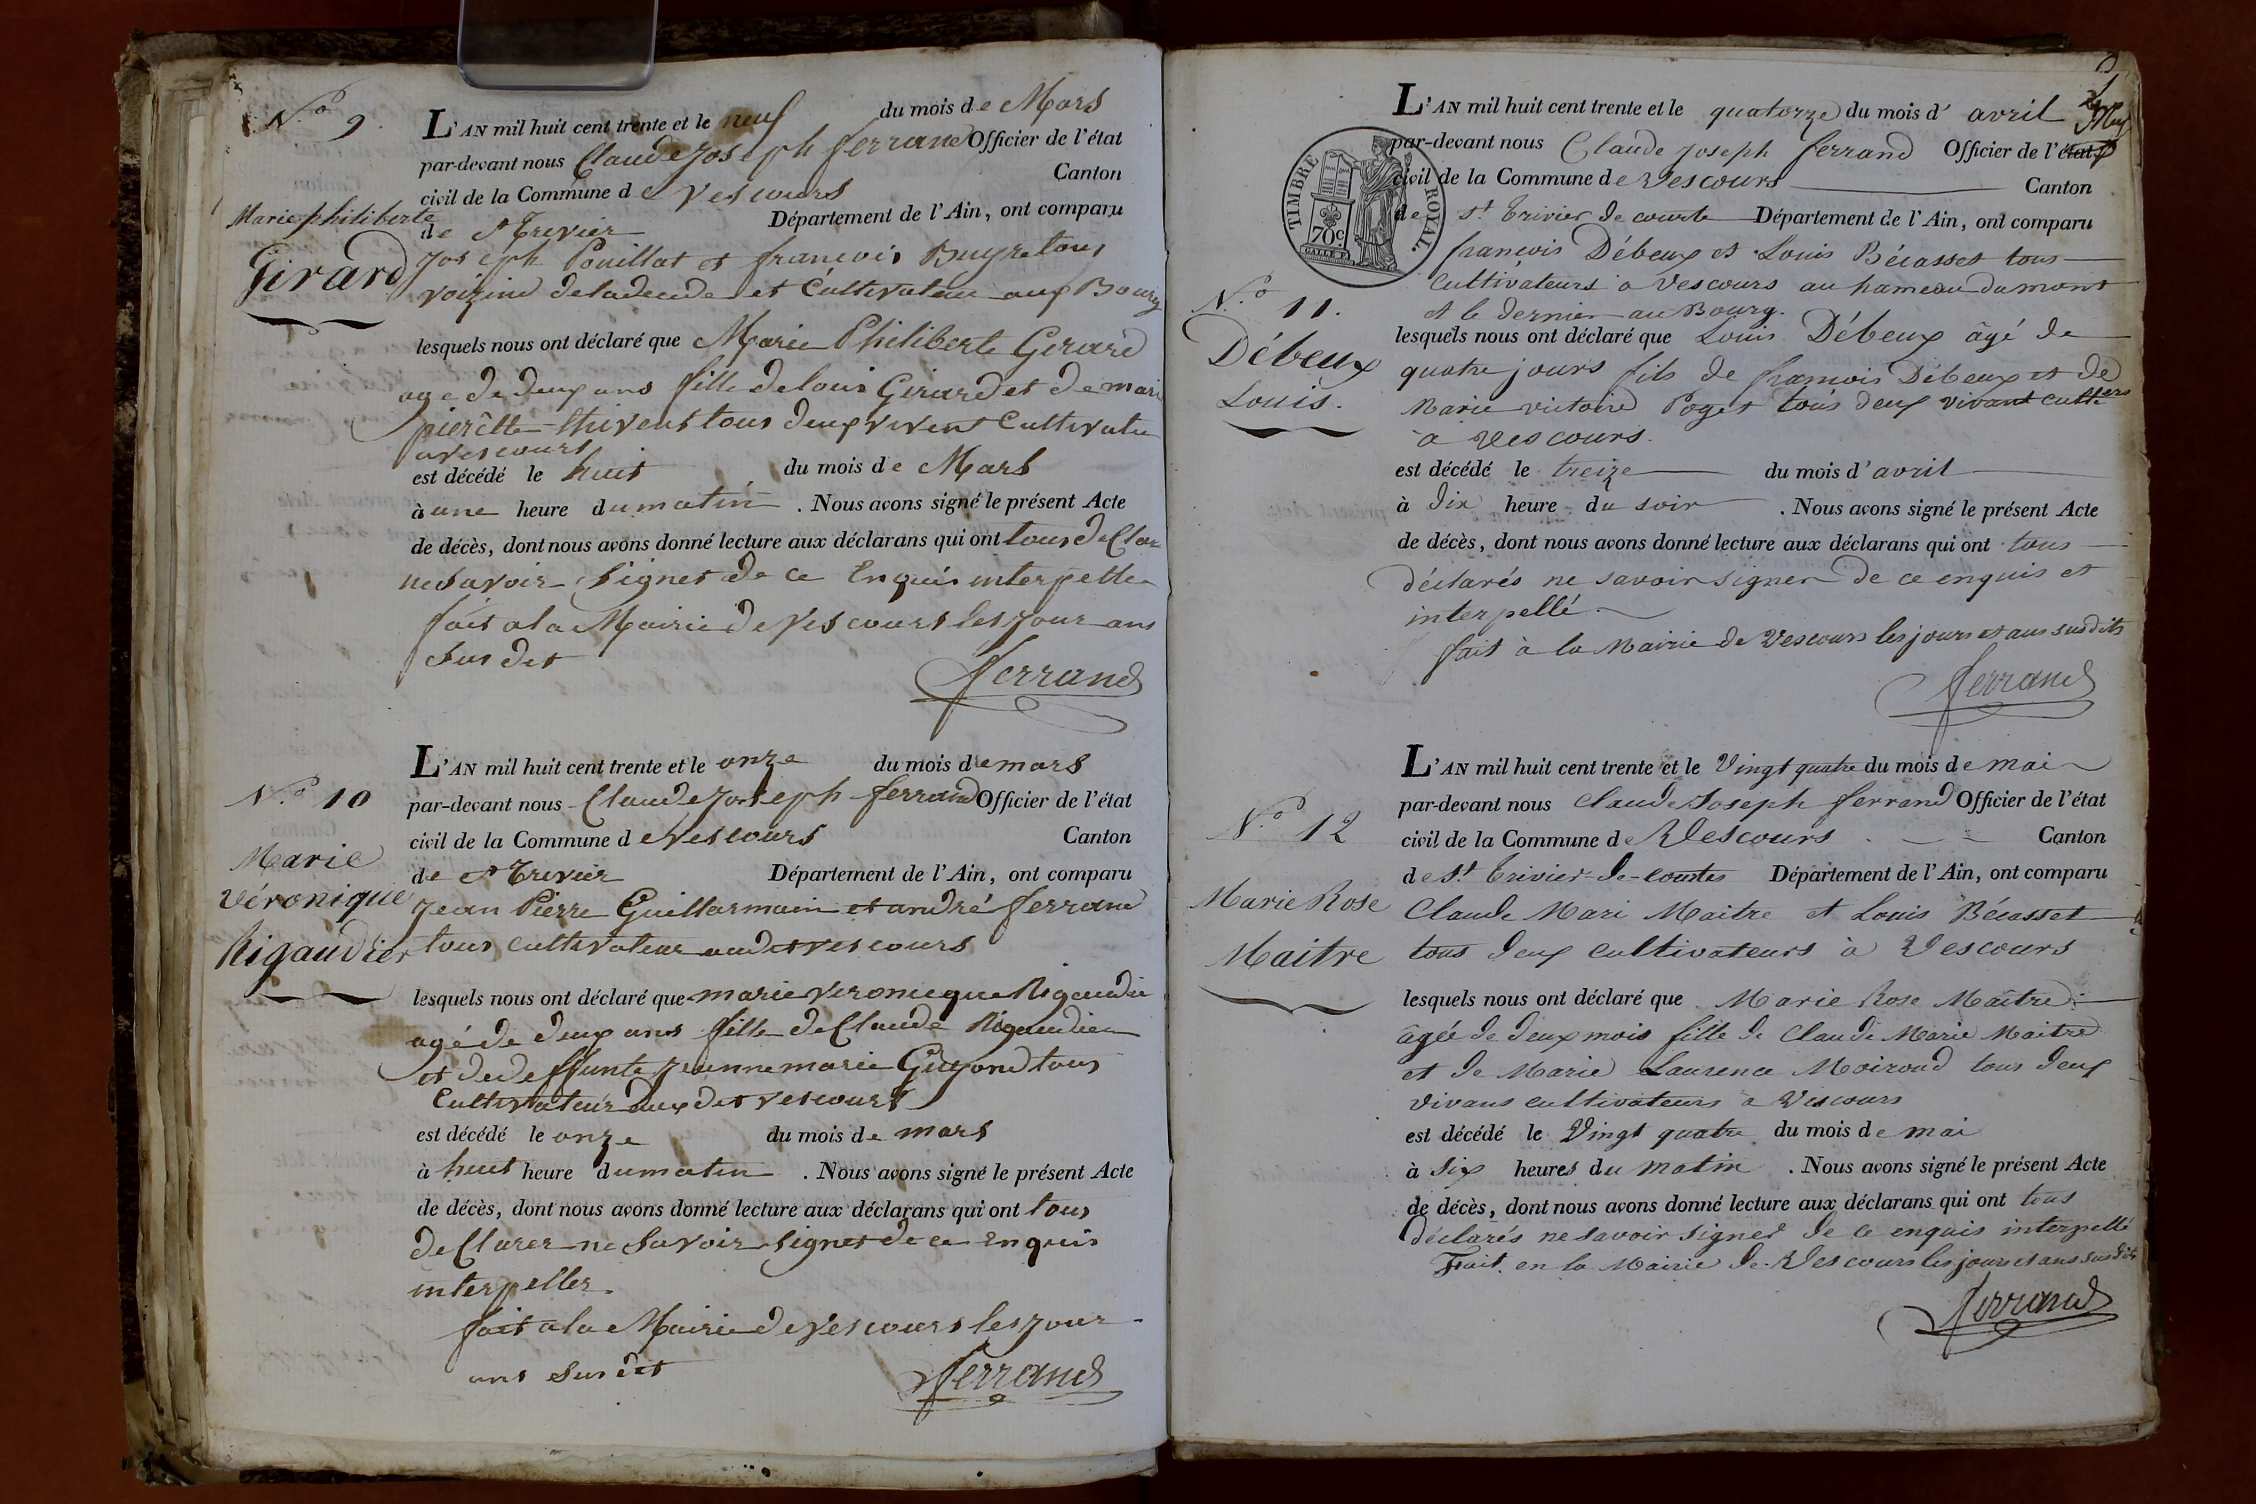 N.º 9.
Marie philiberte
Girard
L'AN mil huit cent trente et le neuf du mois de Mars
par-devant nous Claude Joseph ferrand Officier de l'état
civil de la Commune de Vescours Canton
de St Trevier Département de l'Ain, ont comparu
Joseph Pouillat et françois Buyre tous
voizind de ladeude et Cultivateur aux Bourg
lesquels nous ont déclaré que Marie Philiberte Gerard
age de deux ans fille de louis Girard et de mari
pierètte tous deux vivent Cultivateu
a vescours
est décédé le huit du mois de Mars
à une heure du matin. Nous avons signé le présent Acte
de décès, dont nous avons donné lecture aux déclarans qui ont tous de Clar
ne Savoir Signer de ce Enquis interpeller
fait a la Mairie de Vescours les jour ans
Sus dit
ferrand
N.º 10
Marie
Véronique
Rigaudier
L'AN mil huit cent trente et le onze du mois de mars
par-devant nous Claude Joseph ferrand Officier de l'état
civil de la Commune de Vescours Canton
de St Trevier Département de l'Ain, ont comparu
Jean Pierre Guillarmain et andré ferrand
tous cultivateur audit vescours
lesquels nous ont déclaré que marie veronicque Rigaudie
agé de deux ans fille de Claude Rigaudier
et de deffunte jeanne marie Guyond tous
Cultivateur aux dit vescours
est décédé le onze du mois de mars
à huit heure du matin. Nous avons signé le présent Acte
de décès, dont nous avons donné lecture aux déclarans qui ont tous
de Clarer ne Savoir Signer de ce Enquis
interpeller.
fait a la Mairie de Vescours les jour
ans Sus dit
ferrand
TIMBRE ROYAL.
70c
N.º 11.
Débeux
Louis.
L'AN mil huit cent trente et le quatorze du mois d'avril
par-devant nous Claude Joseph ferrand Officier de l'état
civil de la Commune de Vescours Canton
de St. Trivier de courte Département de l'Ain, ont comparu
françois Débeux et Louis Bécasset tous
Cultivateurs à Vescours au hameau du mont
et le dernier au Bourg.
lesquels nous ont déclaré que Louis Débeux âgé de
quatre jours fils de françois Débeux et de
Marie victoire Poget tous deux vivant cultters
à Vescours.
est décédé le treize du mois d'avril
à dix heure du soir. Nous avons signé le présent Acte
de décès, dont nous avons donné lecture aux déclarans qui ont tous
déclarés ne savoir signer de ce enquis et
interpellé.
fait à la Mairie de Vescours les jours et ans susdits
ferrand
N.º 12
Marie Rose
Maitre
L'AN mil huit cent trente et le Vingt quatre du mois de mai
par-devant nous Claude Joseph ferrand Officier de l'état
civil de la Commune de Vescours Canton
de St. Trivier-de-Courtes Département de l'Ain, ont comparu
Claude Mari Maitre et Louis Bécasset
tous deux cultivateurs à Vescours
lesquels nous ont déclaré que Marie Rose Maitre
agée de deux mois fille de Claude Marie Maitre
et de Marie Laurence Moiroud tous deux
vivans cultivateurs à Vescours
est décédé le Vingt quatre du mois de mai
à Six heures du Matin. Nous avons signé le présent Acte
de décès, dont nous avons donné lecture aux déclarans qui ont tous
Déclarés ne savoir signer de ce enquis interpellé
Fait en la Mairie de Vescours les jours et ans susdits
ferrand